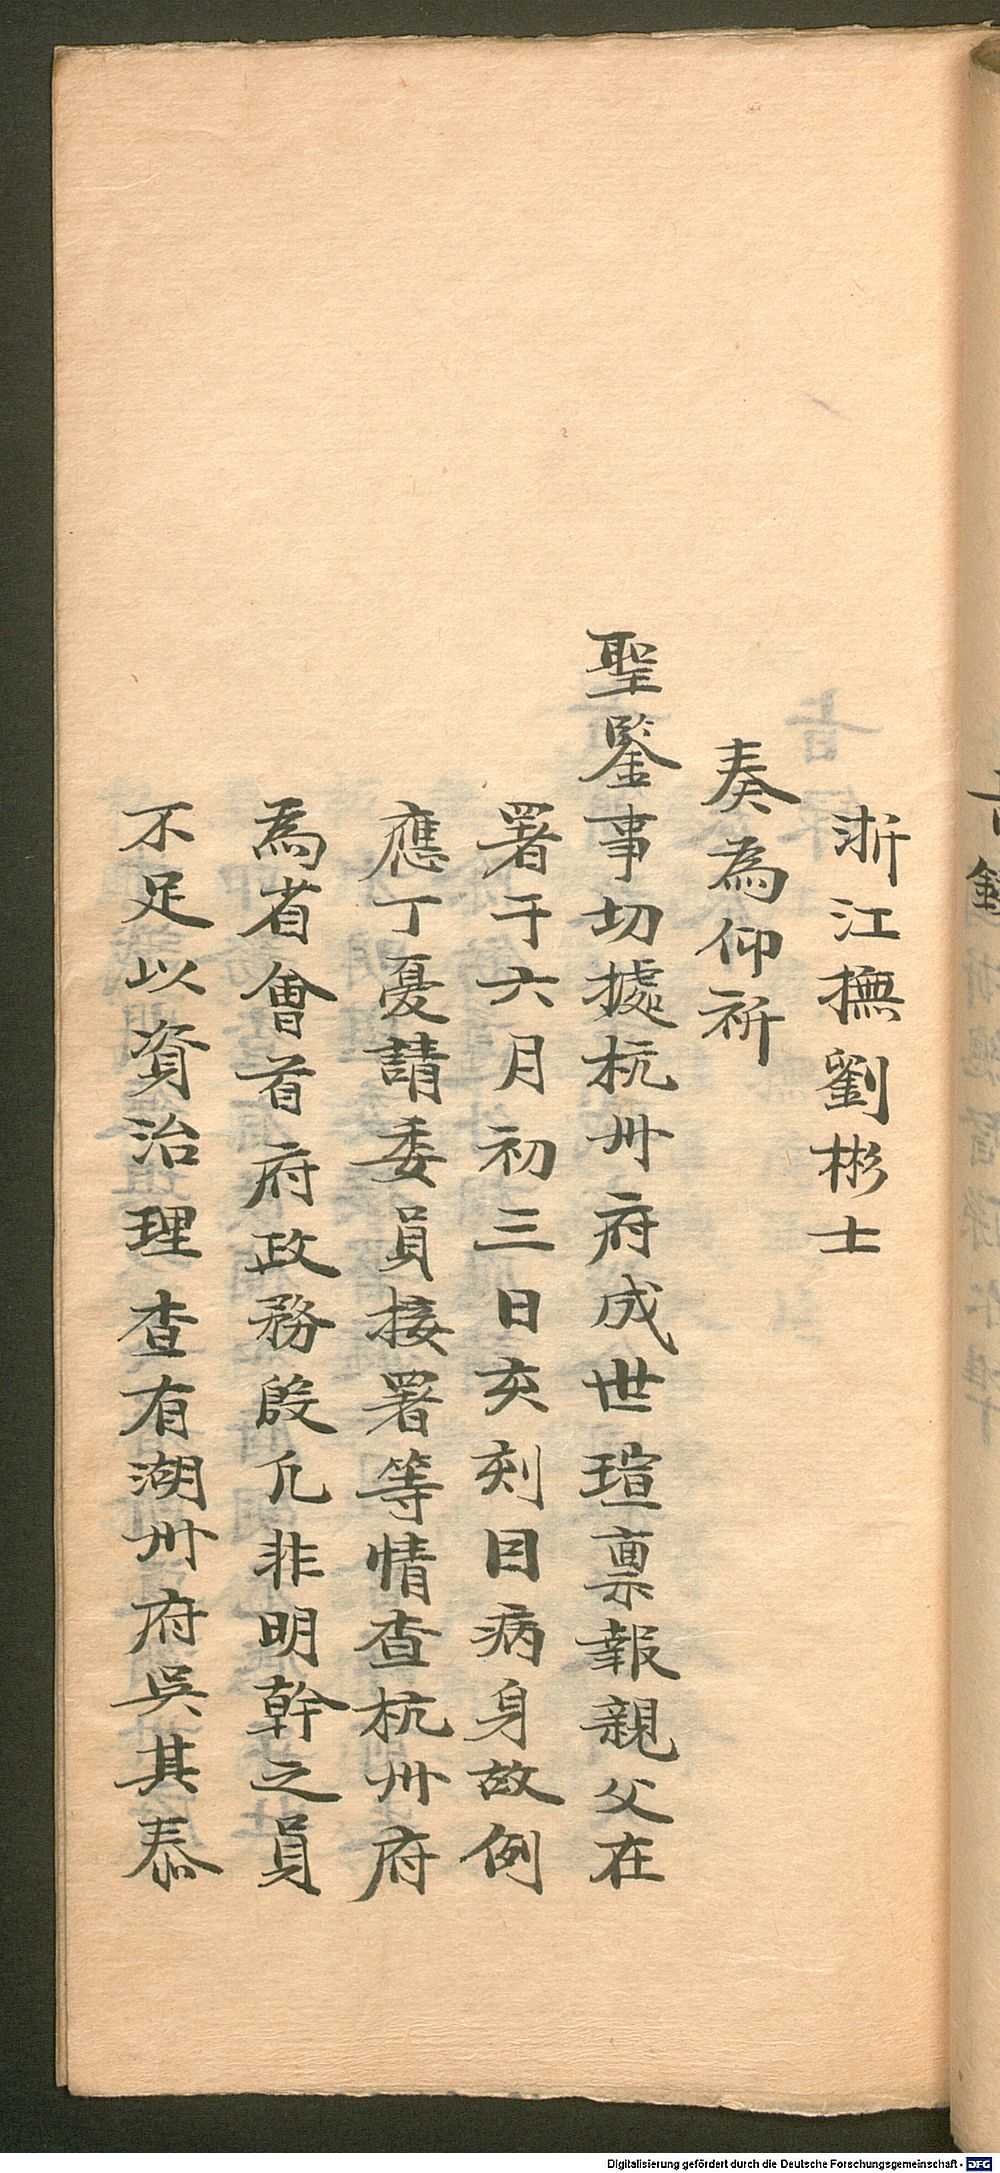 浙江撫劉彬士
奏為仰祈
聖鑒事切據杭州府成世瑄稟報親父在
署于六月初三日亥刻因病身故例
應丁憂請委員接署等情查杭州府
為省會首府政務殷凢非明幹之員
不足以資治理查有湖州府吳其泰
Digitalisierung gefördert durch die Deutsche Forschungsgemeinschaft - DFG